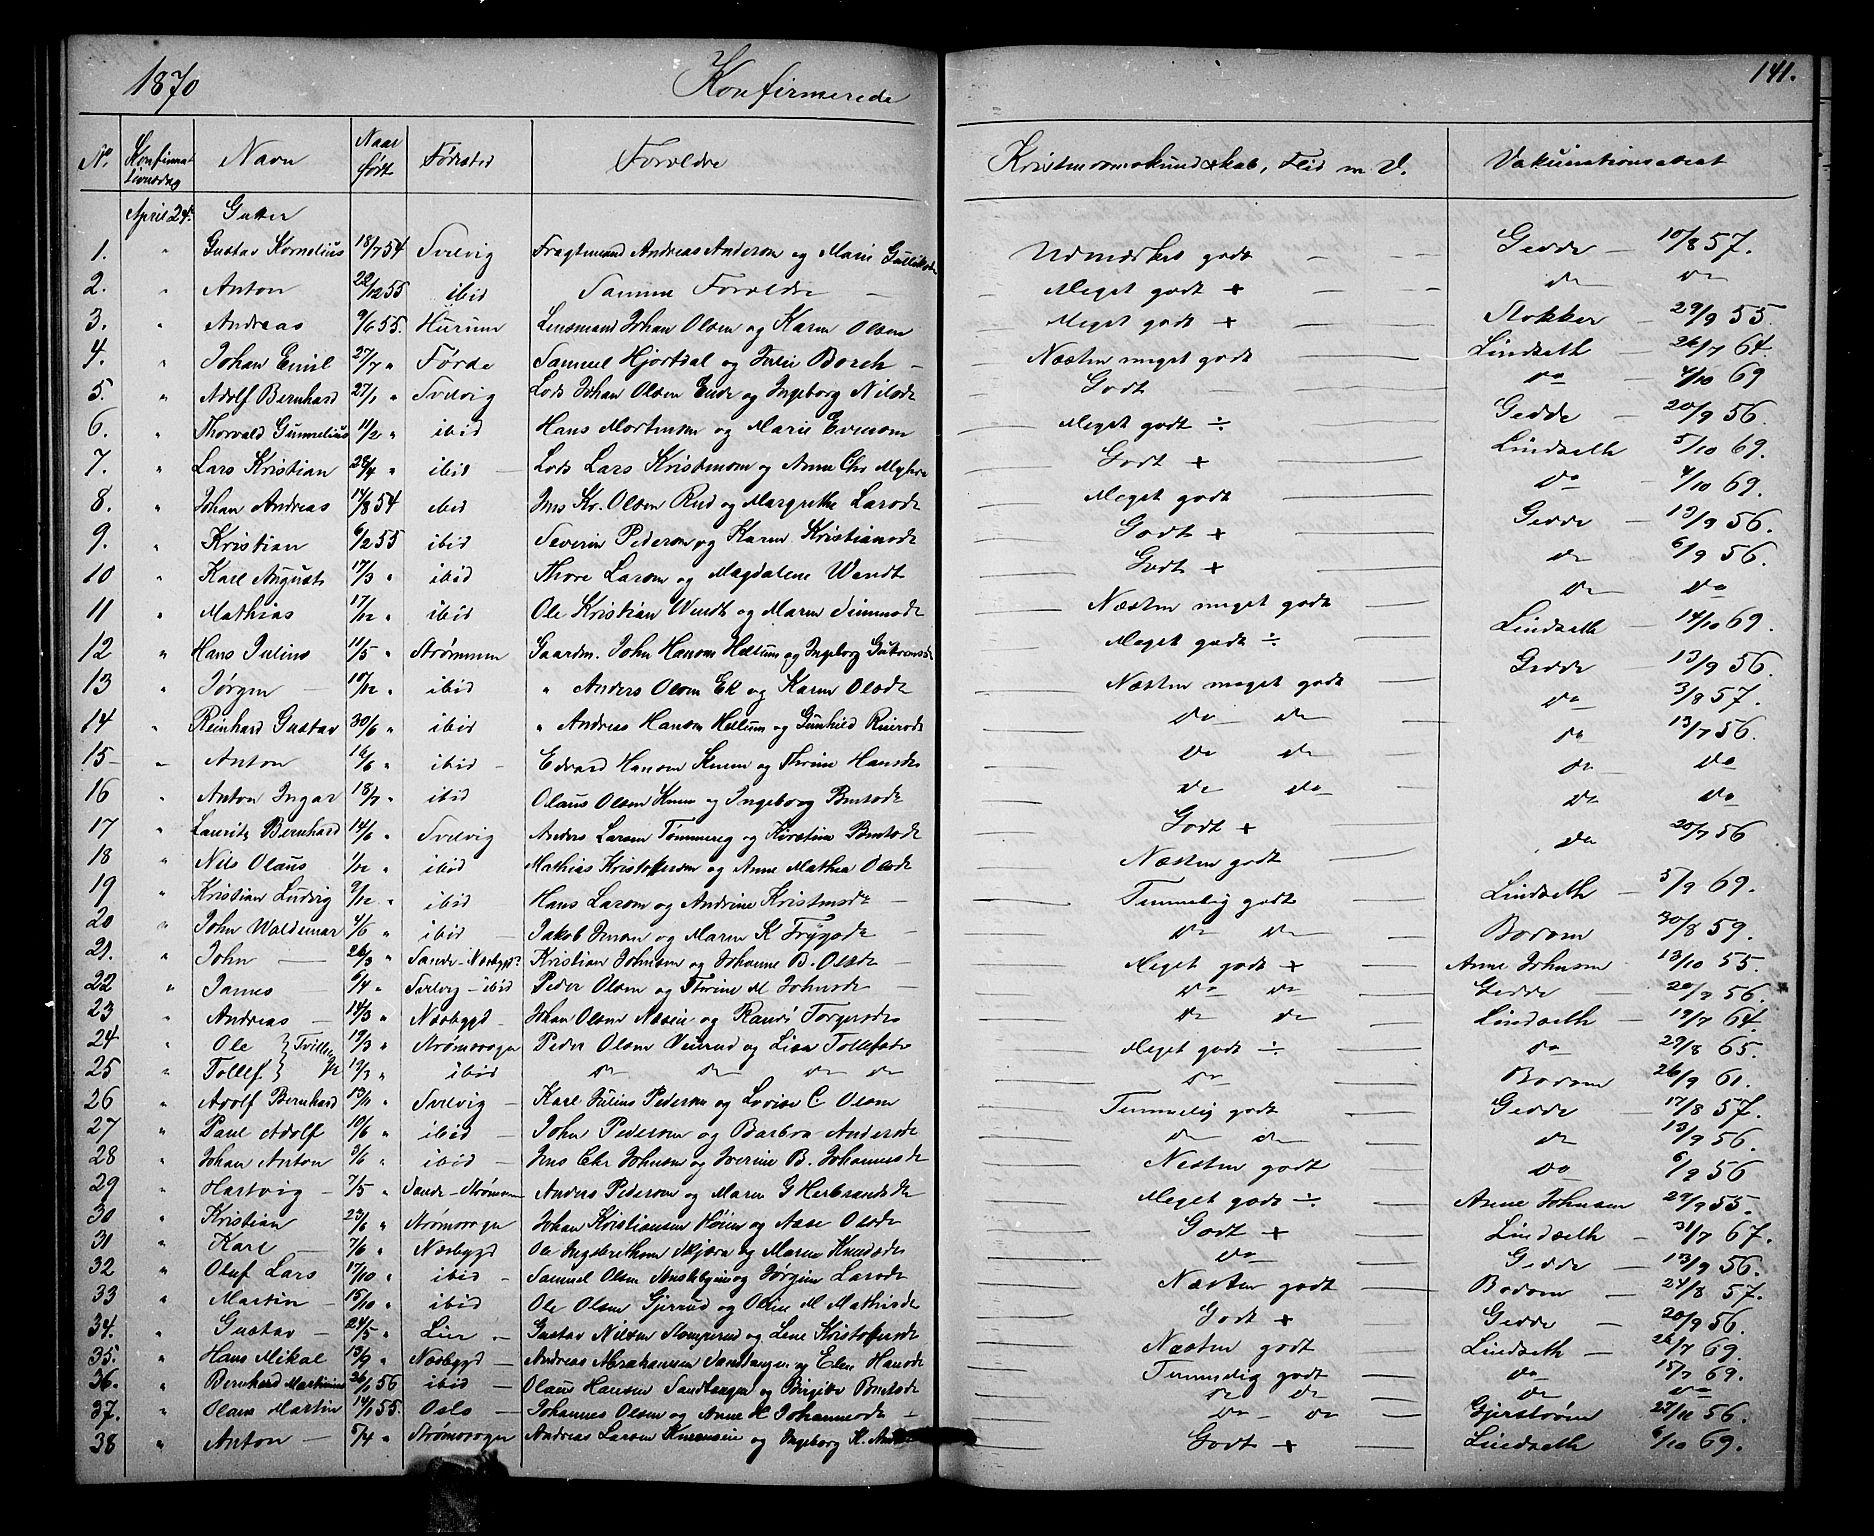 1870 Konfirmerede 141.
No. Konfirmationsdag Navn Naar født Fødested Forældre Kristendomskundskab, Flid m. V. Vakcinationsattest
April 24de Gutter
1. " Gustav Kornelius 18/7 54 Svelvig Fragtmand Andreas Anderson og Marie Gulliksd Udmærket godt — Gedde — 10/8 57.
2. " Anton 22/12 55 ibid Samme Forældre — Meget godt + — do do
3. " Andreas 9/6 55. Hurum Lensmand Johan Olsen og Karen Olsen Meget godt + — Stokker — 29/9 55.
4. " Johan Emil 27/7 " Førde Samuel Hjortdal og Julie Borch — Næsten meget godt — Lindseth — 26/7 64.
5. " Adolf Bernhard 27/1 " Svelvig Lods Johan Olsen Ende og Ingeborg Nilsdt Godt — do — 4/10 69
6. " Thorvald Gunnelius 11/2 " ibid Hans Mortenson og Marie Evenson Meget godt ÷ Gedde — 20/9 56.
7. " Lars Kristian 28/4 " ibid — Lods Lars Kristenson og Anne Chr Myhre Godt + — Lindseth 5/10 69.
8. " Johan Andreas 14/8 54 ibid Jens Kr. Olsen Rud og Margrethe Larsdt Meget godt — do — 4/10 69.
9. " Kristian 6/2 55 ibid Severin Pederson og Karen Kristiansdt Godt + — Gedde — 13/9 56.
10 " Karl August 17/3 " ibid Thore Larson og Magdalene Wendt Godt + — do 6/9 56.
11 " Mathias 17/12 " ibid Ole Kristian Wendt og Maren Simensdt Næsten meget godt — do do
12 " Hans Julius 11/5 " Strømmen Gaardm. John Hanson Hellum og Ingeborg Meget godt ÷ — Lindseth — 14/10 69.
13 " Jørgen — 10/12 " ibid " Anders Olson Ek og Karen Olsdt Næsten meget godt — Gedde — 13/9 56.
14 " Reinhard Gustav 30/6 " ibid " Andreas Hanson Hellum og Gunhild Reiersdt do do — do — 3/8 57.
15 " Anton 16/6 " ibid — Edvard Hanson Knem og Thrine Hansdt do do — do 13/7 56.
16 " Anton Ingar 18/7 " ibid Olaus Olsen Knem og Ingeborg Bentsdt do do — do do
17 " Lauritz Bernhard 14/6 " Svelvig Anders Larsen Tømmereg og Kirstine Bentsdt Godt + — do do
18 " Nils Olaus 1/12 " ibid Mathias Kristofferson og Anne Mathea Olsdt Næsten godt — do 20/7 56
19 " Kristian Ludvig 9/12 " ibid Hans Larson og Andrine Kristensdt — Temmelig godt — Lindseth — 5/9 69.
20 " John Waldemar 4/6 " ibid — Jakob Jenson og Maren K Frygsdt — do do — Bodom 30/8 59.
21. " John — 26/3 " Sande-Nesbygd Kristian Johnson og Johanne B. Olsdt — Meget godt + — Anne Johnson — 13/10 55.
22 " James — 6/4 " Svelvig — ibid Peder Olsen og Thrine M Johnsdt — do do — Gedde — 20/9 56.
23 " Andreas — 14/3 " Nesbygd — Johan Olsen Næsie og Randi Torgersdt do do — Lindseth — 19/7 64.
24 " Ole } Tvillinger 19/3 " Strømsogn Peder Olsen Veierud og Lisa Tollefsdt Meget godt ÷ — do 29/8 65.
25 " Tollef } 19/3 " ibid do do do do do — Bodom 26/9 61.
26 " Adolf Bernhard 13/11 " Svelvig — Karl Julius Pederson og Lovise C Olsen Temmelig godt — Gedde — 17/8 57.
27 " Paul Adolf 10/6 " ibid — John Pederson og Barbra Andersdt do do — do 13/9 56.
28 " Johan Anton 3/6 " ibid — Jens Chr Johnson og Iverine B. Johannesdt Næsten godt do 6/9 56
29 " Hartvig — 7/5 " Sande-Strømmen Anders Pederson og Maren G Herbrandsdt Meget godt ÷ — Anne Johnsen 27/9 55.
30 " Kristian 23/6 " Strømsogn Johan Kristiansen Høien og Aase Olsdt Godt + — Lindseth — 31/7 67.
31 " Karl — 7/6 " Nesbygd Ole Ingebrethson Skjæra og Maren Knudsdt do — Gedde — 13/9 56.
32 " Oluf Lars 17/10 " ibid — Samuel Olsen og Jørgine Larsdt Næsten godt — Bodom — 24/8 57.
33 " Martin — 15/10 " ibid Ole Olsen Gjerrud og Oline M Mathisdt Godt + — Gedde — 20/9 56.
34. " Gustav — 24/5 " Lier — Gustav Nilsen Stomperud og Lene Kristoffersdt Næsten godt — Lindseth — 26/7 69.
35. " Hans Mikal 13/9 " Nesbygd — Andreas Abrahamsen Sandtangen og Elen Hansdt Temmelig godt — do 15/7 69.
36. " Bernhard Martinius 26/1 56 ibid — Olaus Hansen Sandtangen og Birgitte Bentsdt do do — do do
37. " Olaus Martin 14/1 55. Oslo — Johannes Olsen og Anne M Johannesdt — do — do — Gjerstrøm 27/11 56.
38 " Anton — 5/4 " Strømsogn Andreas Larsen og Ingeborg K. Godt + — Lindseth — 6/10 69.